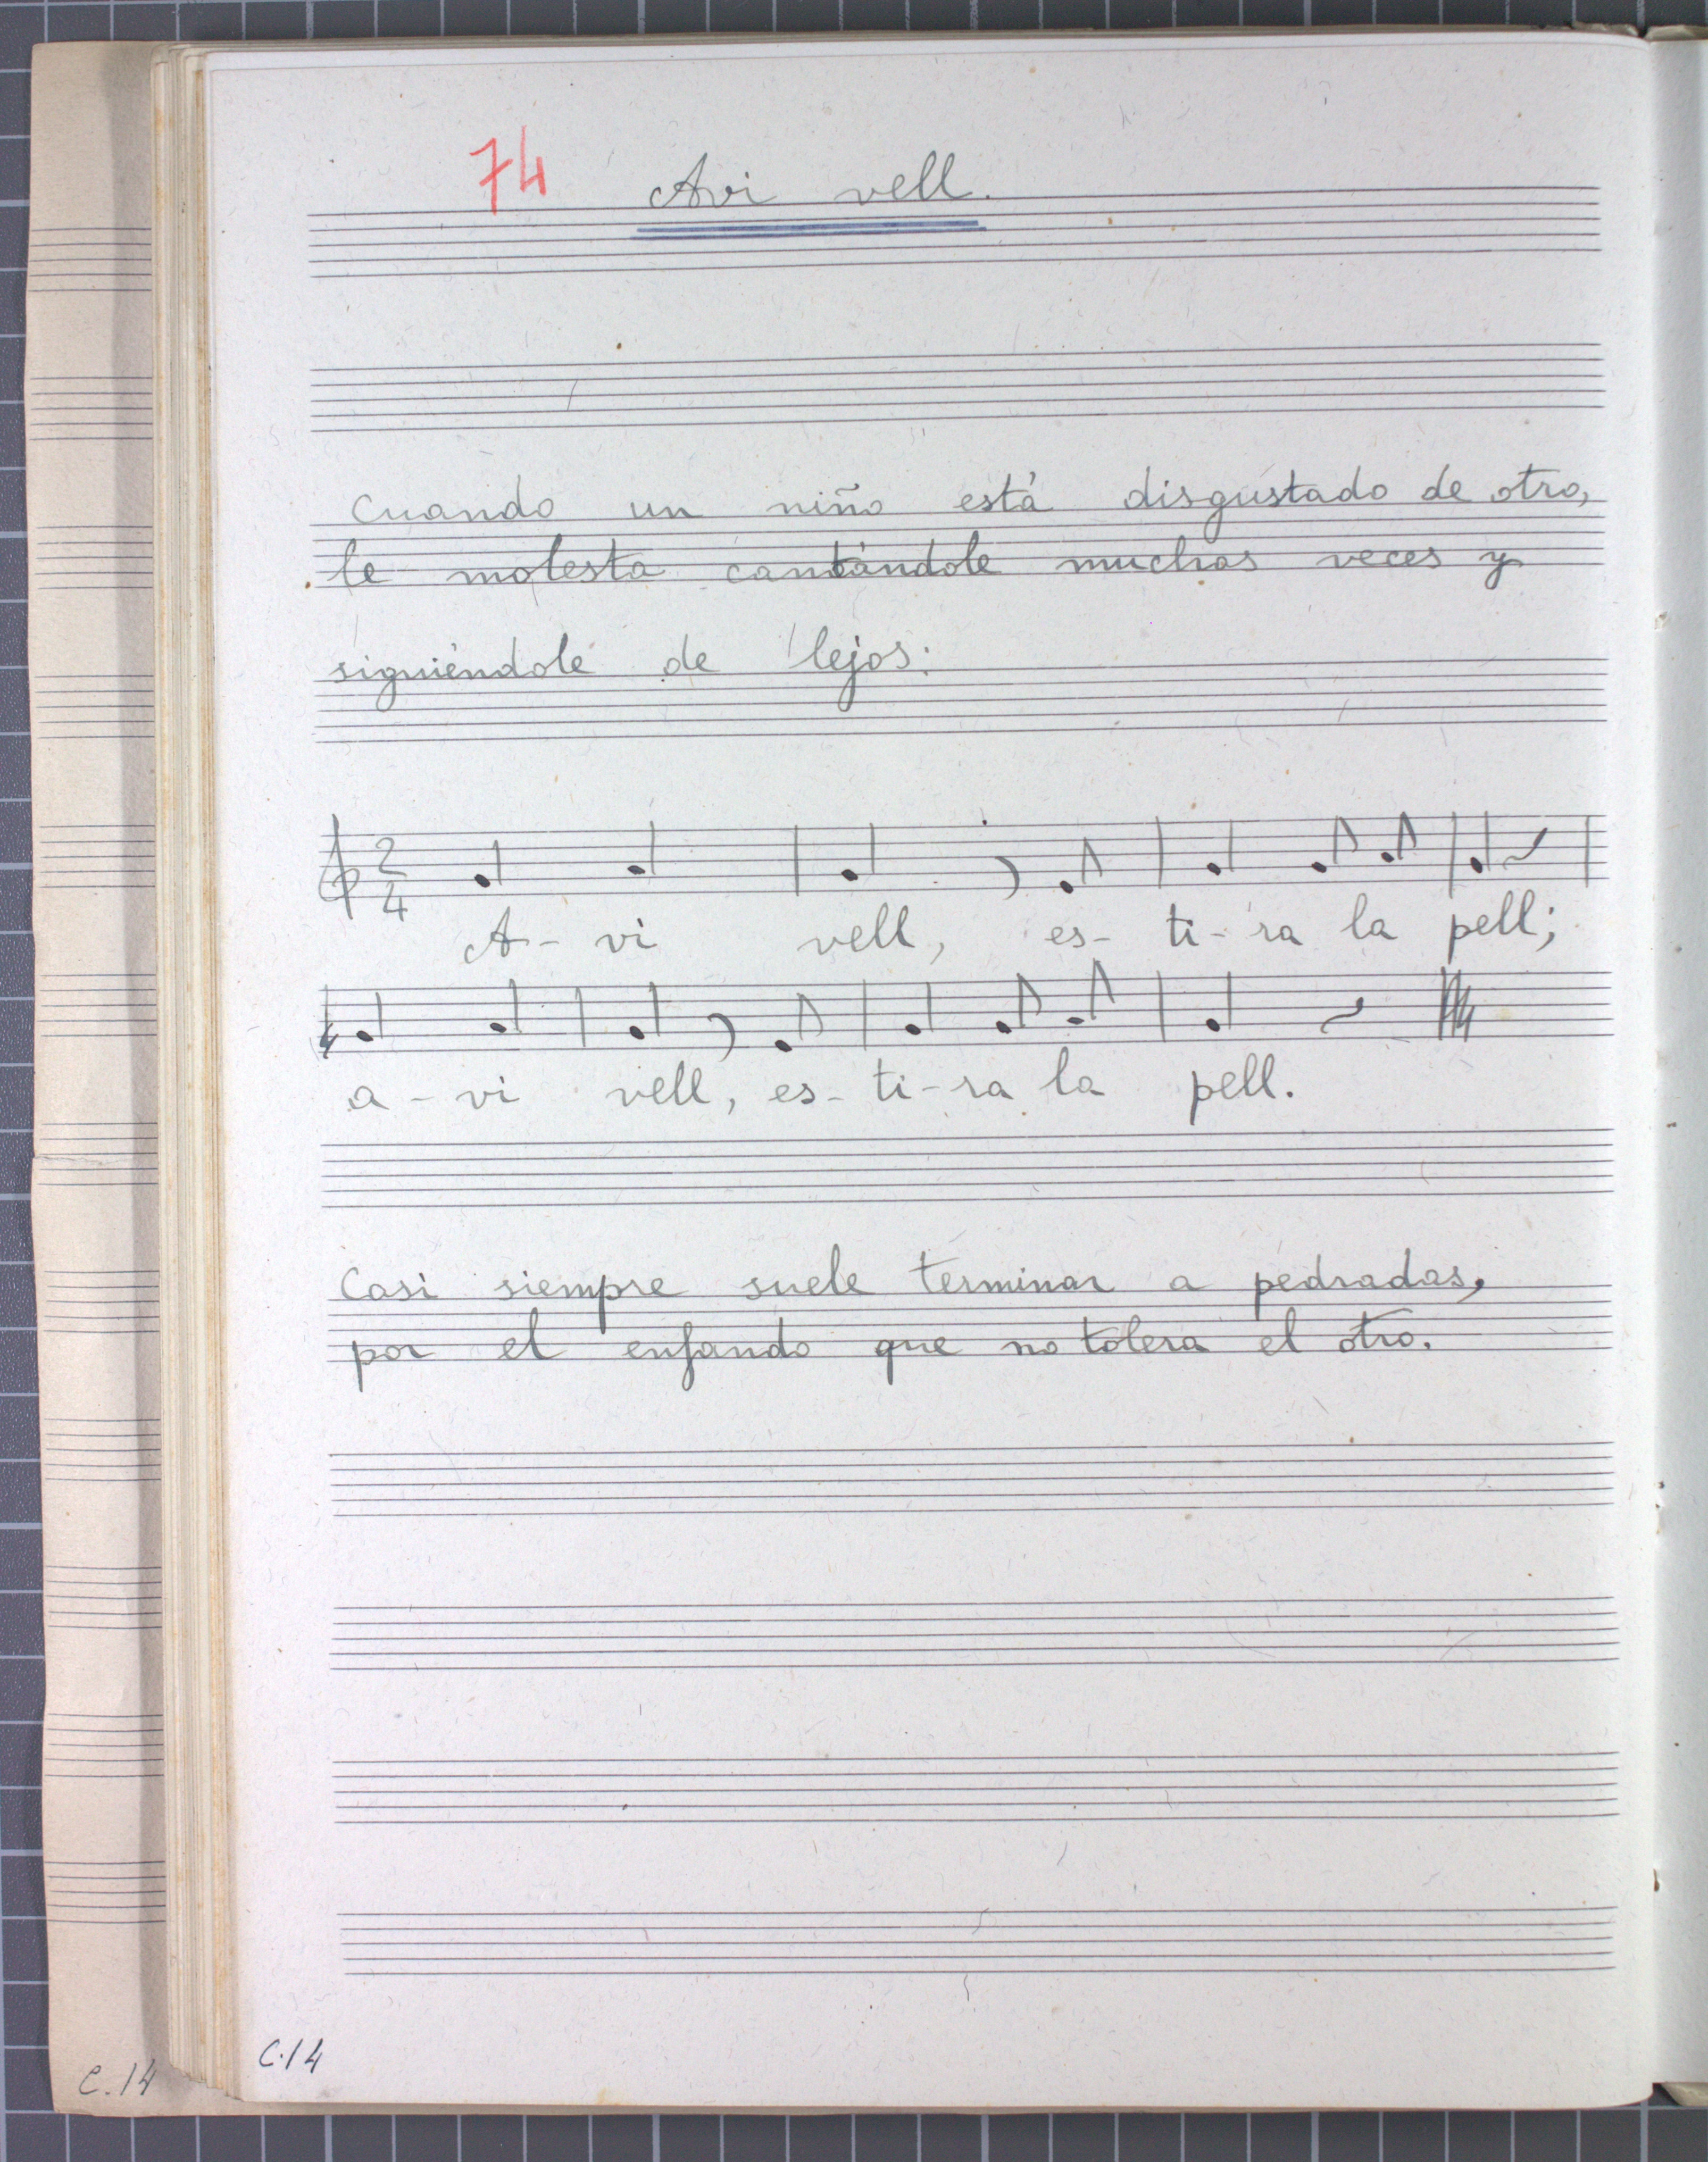 74 Avi vell.
Cuando un niño está disgustado de otro,
le molesta cantándole muchas veces y
siguiéndole de lejos:
2
4
A- vi vell, es- ti- ra la pell;
a - vi vell, es- ti-ra la pell.
Casi siempre suele terminar a pedradas,
por el enfando que no tolera el otro.
C.14
C.14